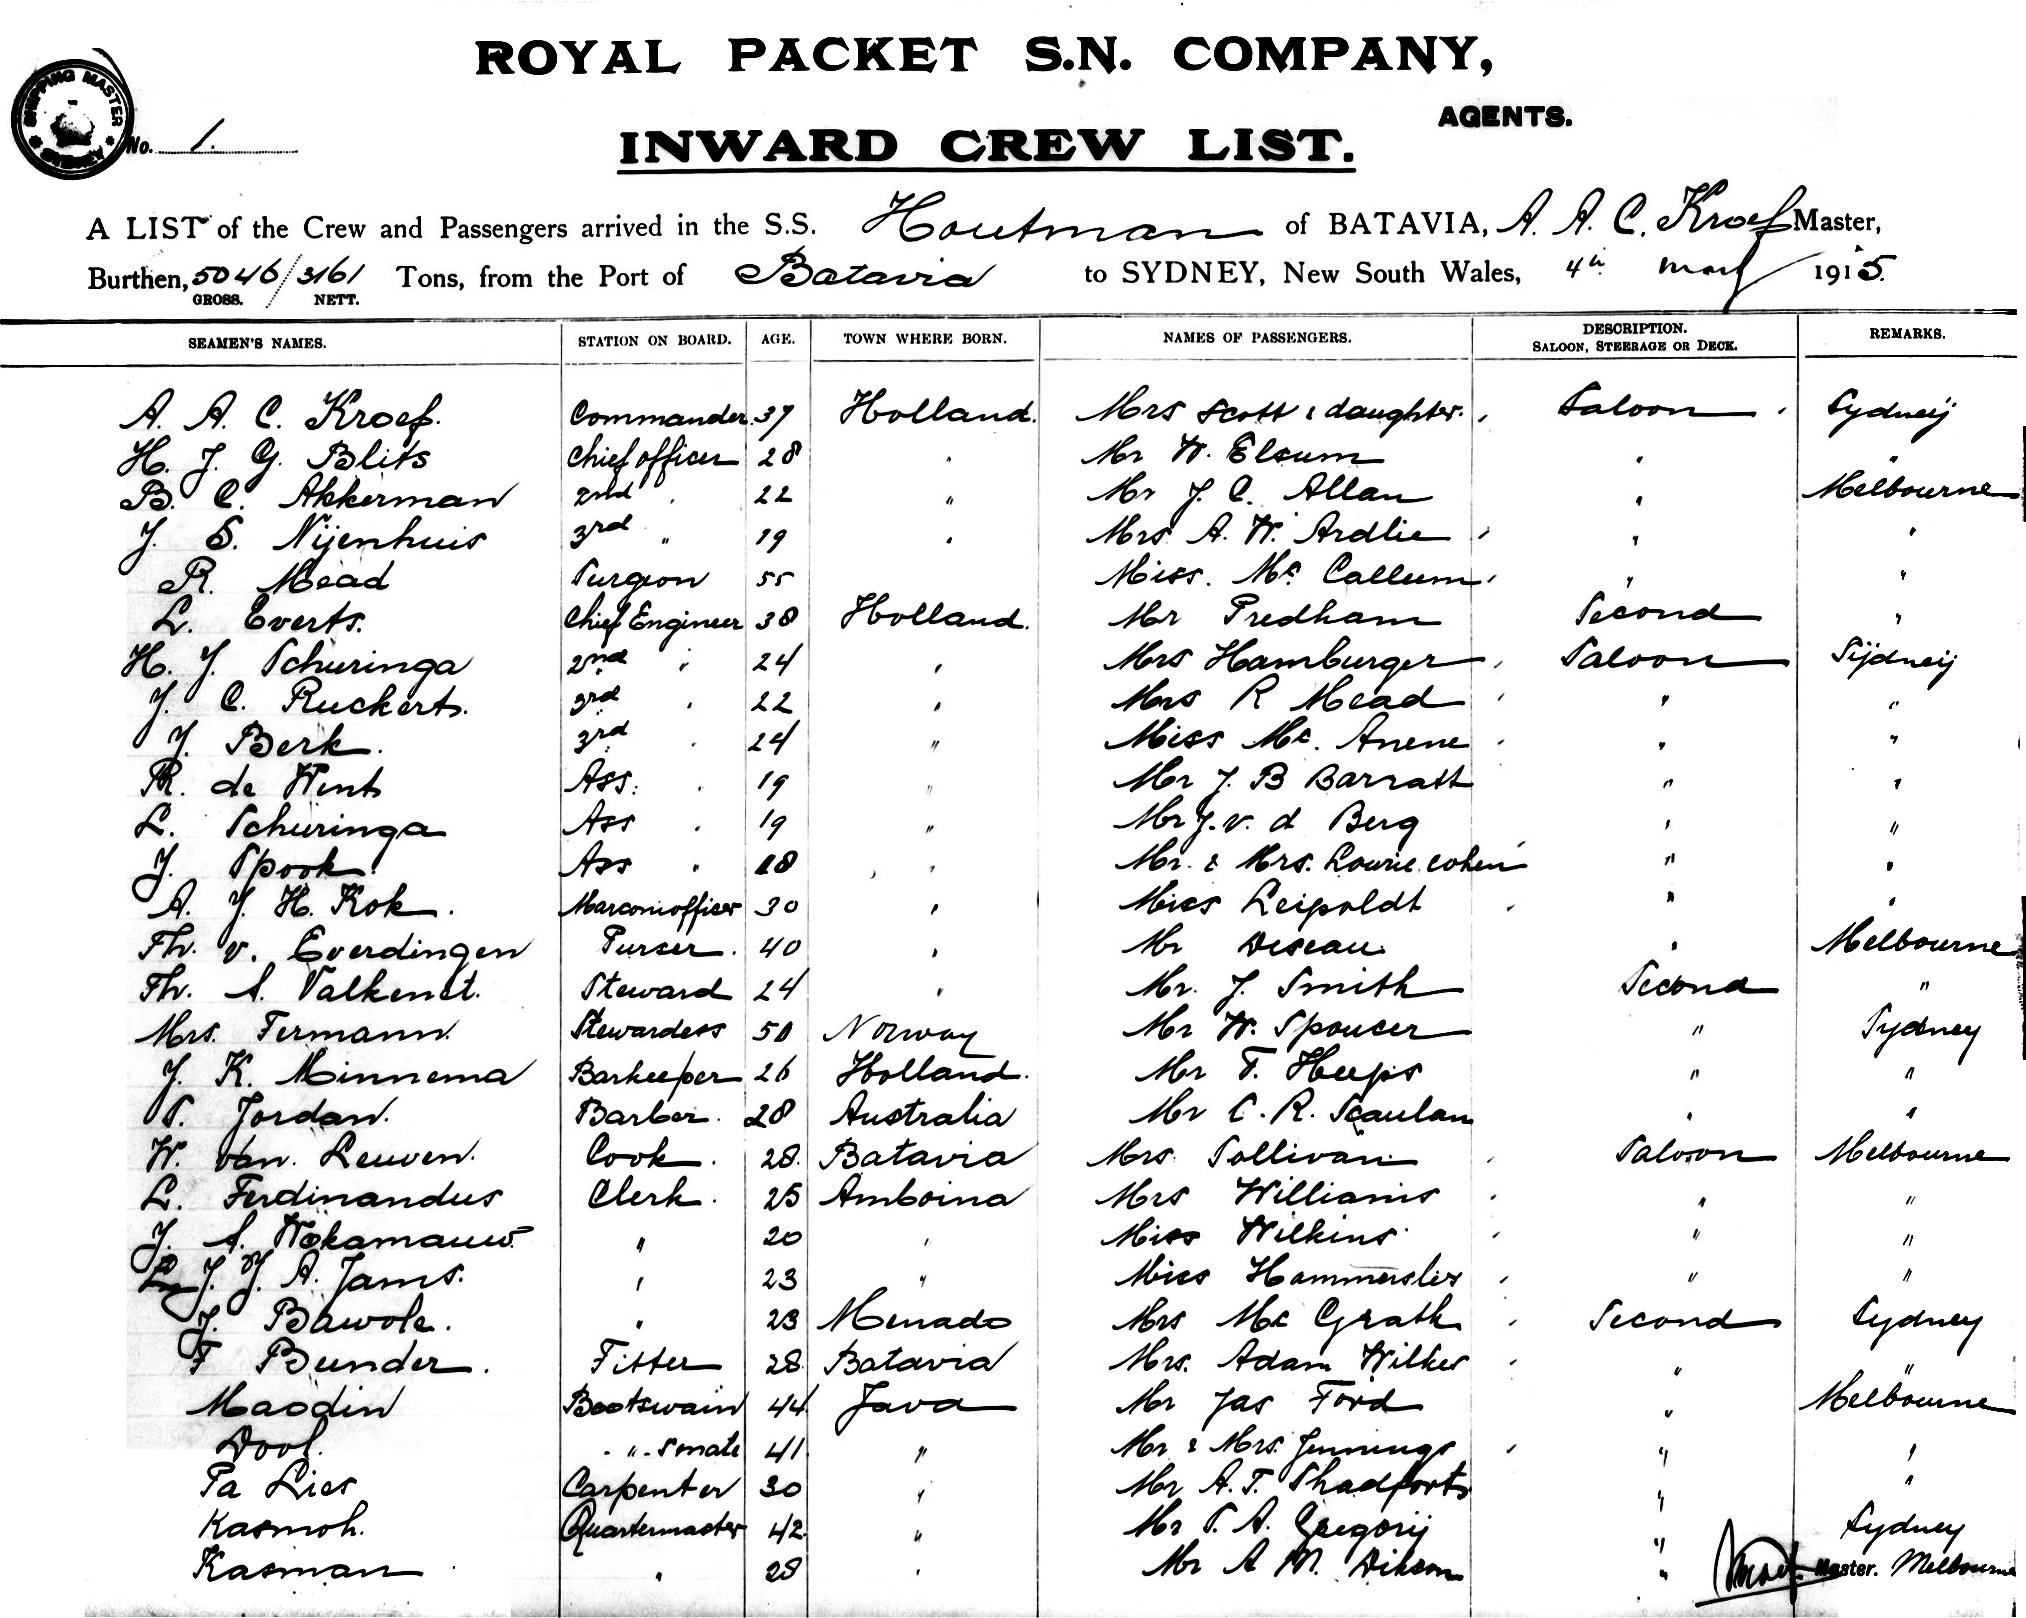 ROYAL PACKET S.N. COMPANY,
AGENTS.
SHIPPING MASTER SYDNEY
No. 1.
INWARD CREW LIST.
A LIST of the Crew and Passengers arrived in the S.S. Houtman of BATAVIA, A. A. C. Kroef Master,
Burthen, 5046/3161 Tons, from the Port of Batavia to SYDNEY, New South Wales, 4th May 1915.
GROSS. NETT.
SEAMEN'S NAMES. STATION ON BOARD. AGE. TOWN WHERE BORN. NAMES OF PASSENGERS. DESCRIPTION. SALOON, STEERAGE OR DECK. REMARKS.
A. A. C. Kroef. Commander. 37 Holland. Mrs Scott & daughter. Saloon Sydneij
H. J. G. Blits Chief officer 28 " Mr W. Elsum " "
B. C. Akkerman 2nd " 22 " Mr J. C. Allan " Melbourne
J. S. Nijenhuis 3rd " 19 " Mrs A. W. Ardlie " "
R. Mead Surgeon 55 Miss. Mc Callum " "
L. Everts. Chief Engineer 38 Holland. Mr Predham Second "
H. J. Schuringa 2nd " 24 " Mrs Hamburger Saloon Sijdneij
J. C. Ruckerts. 3rd " 22 " Mrs R Mead " "
J. Berk. 3rd " 24 " Miss Mc. Anene " "
R. de Wint Ass. " 19 " Mr J. B Barratt " "
L. Schuringa Ass " 19 " Mr J. v. d Berg " "
J. Spook. Ass " 18 " Mr. & Mrs. Lowrie Cohen " "
A. J. H. Kok. Marconiofficer 30 " Miss Leipoldt " "
Th. v. Everdingen Purser. 40 " Mr Deseau. " Melbourne
Th. A. Valkenet. Steward 24 " Mr. J. Smith Second "
Mrs. Fermann. Stewardess 50 Norway Mr W. Spoucer " Sydney
J. K. Minnema Barkeeper 26 Holland. Mr F. Heeps " "
S. Jordan. Barber. 28 Australia Mr C. R. Scaulan " "
W. van Leuven. Cook. 28. Batavia Mrs. Sollivan Saloon Melbourne
L. Ferdinandus Clerk. 25 Amboina Mrs Williams " "
J. A. Wokamauw " 20 " Miss Wilkins " "
J. J. A. Jams. " 23 " Miss Hammersley " "
J. Bawole. " 23 Menado Mrs Mc Grath Second Sydney
F Bunder. Fitter 28 Batavia Mrs. Adam Wilkes " "
Maodin Bootswain 44 Java Mr Jas Ford " Melbourne
Dool. " smate 41 " Mr & Mrs. Jennings " "
Pa Lies Carpenter 30 " Mr A. F. Shadforts " "
Kasmoh. Quartermaster 42 " Mr S. A. Gregorij " Sydney
Kasman " 28 " Mr A M. Dikson " Melbourne
Kroef. Master.